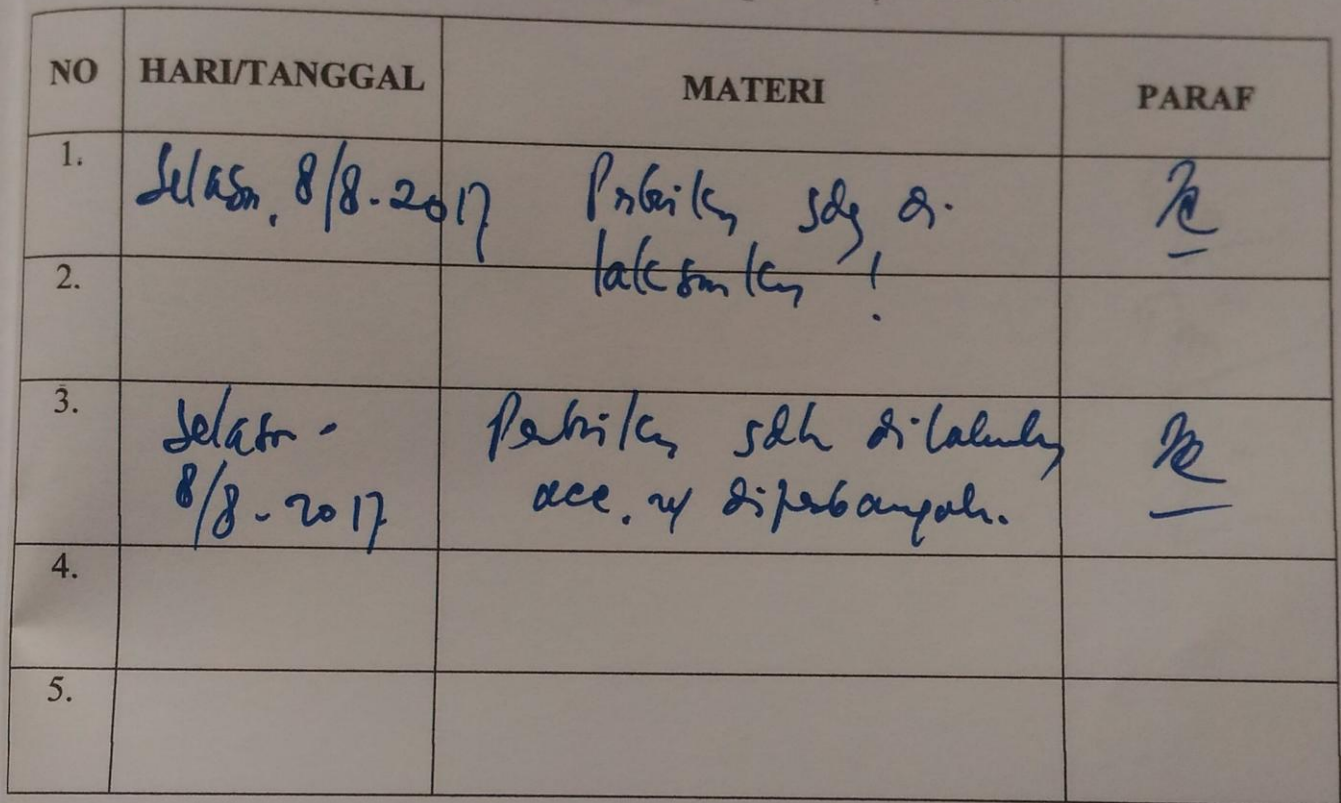 NO HARI/TANGGAL MATERI PARAF
1. Selasa, 8/8-2017 Perbaikan sdg di-
laksanakan !
2.
3. Selasa - Perbaikan sdh dilakukan
8/8-2017 acc. u/ diperbanyak.
4.
5.